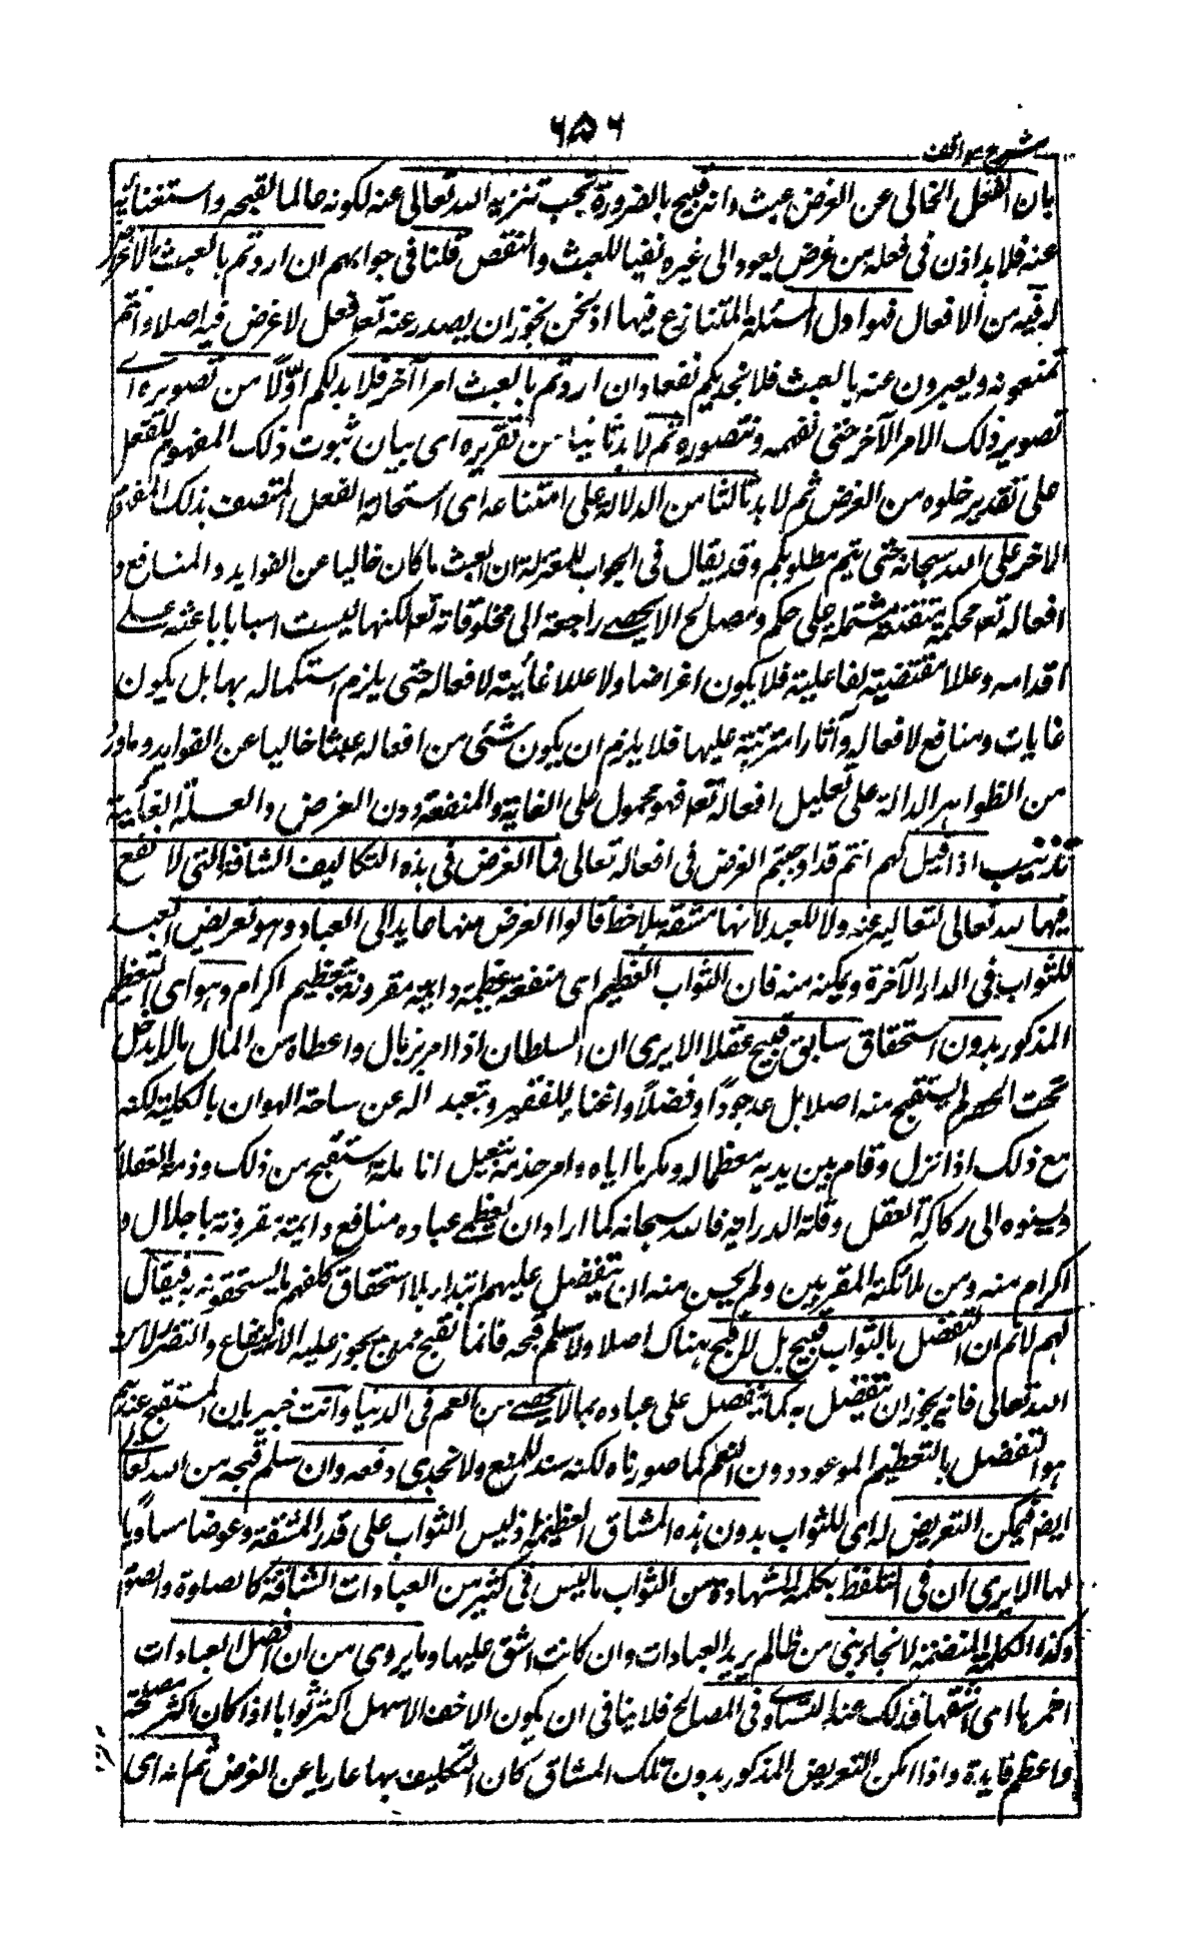 ٦٥٦
شرح مواقف
بان الفعل الخالى عن الغرض عبث وانه قبيح بالضرورة يجب تنزيه الله تعالى عنه لكونه عالما بقبحه واستغنائه
عنه فلا بد اذن فى فعله من غرض يعود الى غيره نفيا للعبث والنقص قلنا فى جوابهم ان اردتم بالعبث ما لا غرض
له فيه من الافعال فهو اول المسئلة المتنازع فيها اذ نحن نجوز ان يصدر عنه تعا فعل لا غرض فيه اصلا وانتم
تمنعونه ويعبرون عنه بالعبث فلا نجديكم نفعا وان اردتم بالعبث امرا آخر فلا بد لكم اولًا من تصويره اے
تصوير ذلك الامر الآخر حتى نفهمه ونتصوره ثم لا بد ثانيا من تقريره اى بيان ثبوت ذلك المفهوم للفعل
على تقدير خلوه من الغرض ثم لا بد ثالثا من الدلالة على امتناعه اى استحالة الفعل المتصف بذلك المفهوم
الاخر على الله سبحانه حتى يتم مطلوبكم وقد يقال فى الجواب للمعتزلة ان العبث ما كان خاليا عن الفوايد والمنافع و
افعاله تعا محكمة متقنة مشتملة على حكم ومصالح لا تحصے راجعة الى مخلوقاته تعا لكنها ليست اسبابا باعثة علے
اقدامه وعللا مقتضية لفاعليته فلا يكون اغراضا ولا عللا غائية لافعاله حتى يلزم استكماله بها بل يكون
غايات ومنافع لافعاله وآثارا مترتبة عليها فلا يلزم ان يكون شئى من افعاله عبثا خاليا عن الفوايد وما ورد
من الظواهر الدالة على تعليل افعاله تعا فهو محمول على الغاية والمنفعة دون الغرض والعلة الغائية
تذنيب اذا قيل لهم انتم قد اوجبتم الغرض فى افعاله تعالى فما الغرض فى هذه التكاليف الشاقة التى لا نفع
فيها لله تعالى لتعاليه عنه ولا للعبد لانها مشقة بلا حظ قالوا الغرض منها عايد الى العباد وهو تعريض العبد
للثواب فى الدار الآخرة وتمكينه منه فان الثواب العظيم اى منفعة عظيمة دايمة مقرونة بتعظيم اكرام وهو اى التعظيم
المذكور بدون استحقاق سابق قبيح عقلا الا يرى ان السلطان اذا امر بزبال واعطاه من المال ما لا يدخل
تحت الحصر لم يستقبح منه اصلا بل عد جودًا وفضلًا واغناء للفقير وتبعيدا له عن ساحة الهوان بالكلية لكنه
مع ذلك اذا نزل وقام بين يديه معظما له ومكرما اياه وامر خدمه بتقبيل انا مله يستقبح من ذلك وذمه العقلاء
وينسبوه الى ركاكة العقل وقلة الدراية فالله سبحانه لما اراد ان يعطے عباده منافع دايمة مقرونة باجلال و
اكرام منه ومن ملائكته المقربين ولم يحسن منه ان يتفضل عليهم ابتداء بلا استحقاق كلفهم ما يستحقونه به فيقال
لهم لا نم ان التفضل بالثواب قبيح بل لا قبح هناك اصلا ولا سلم قبحه فانما يقبح ممن يجوز عليه الانتفاع والتضرر لا من
الله تعالى فانه يجوز ان يتفضل به كما تفضل على عباده بما لا يحصے من النعم فى الدنيا وانت خبير بان المستقبح عندهم
هو التفضل بالتعظيم الموعود دون النعم كما صورناه لكنه سند للمنع ولا تجدى دفعه وان سلم قبحه من الله تعا
ايضا فيمكن التعريض له اى للثواب بدون هذه المشاق العظيمة اذ ليس الثواب على قدر المشقة وعوضا مساويا
لها الا يرى ان فى التلفظ بكلمة الشهادة من الثواب ما ليس فى كثير من العبادات الشاقة كالصلوة والصوم
وكذا الكلمة المتضمنة لانجاء نبى من ظالم يريد العبادات وان كانت اشق عليها وما يروى من ان افضل العبادات
احمزها اى اشقها فذلك عند التساوى فى المصالح فلا ينافى ان يكون الاخف الاسهل اكثر ثوابا اذا كان اكثر مصلحة
واعظم فايدة واذا امكن التعريض المذكور بدون تلك المشاق كان التكليف بها عاريا عن الغرض ثم انه اى